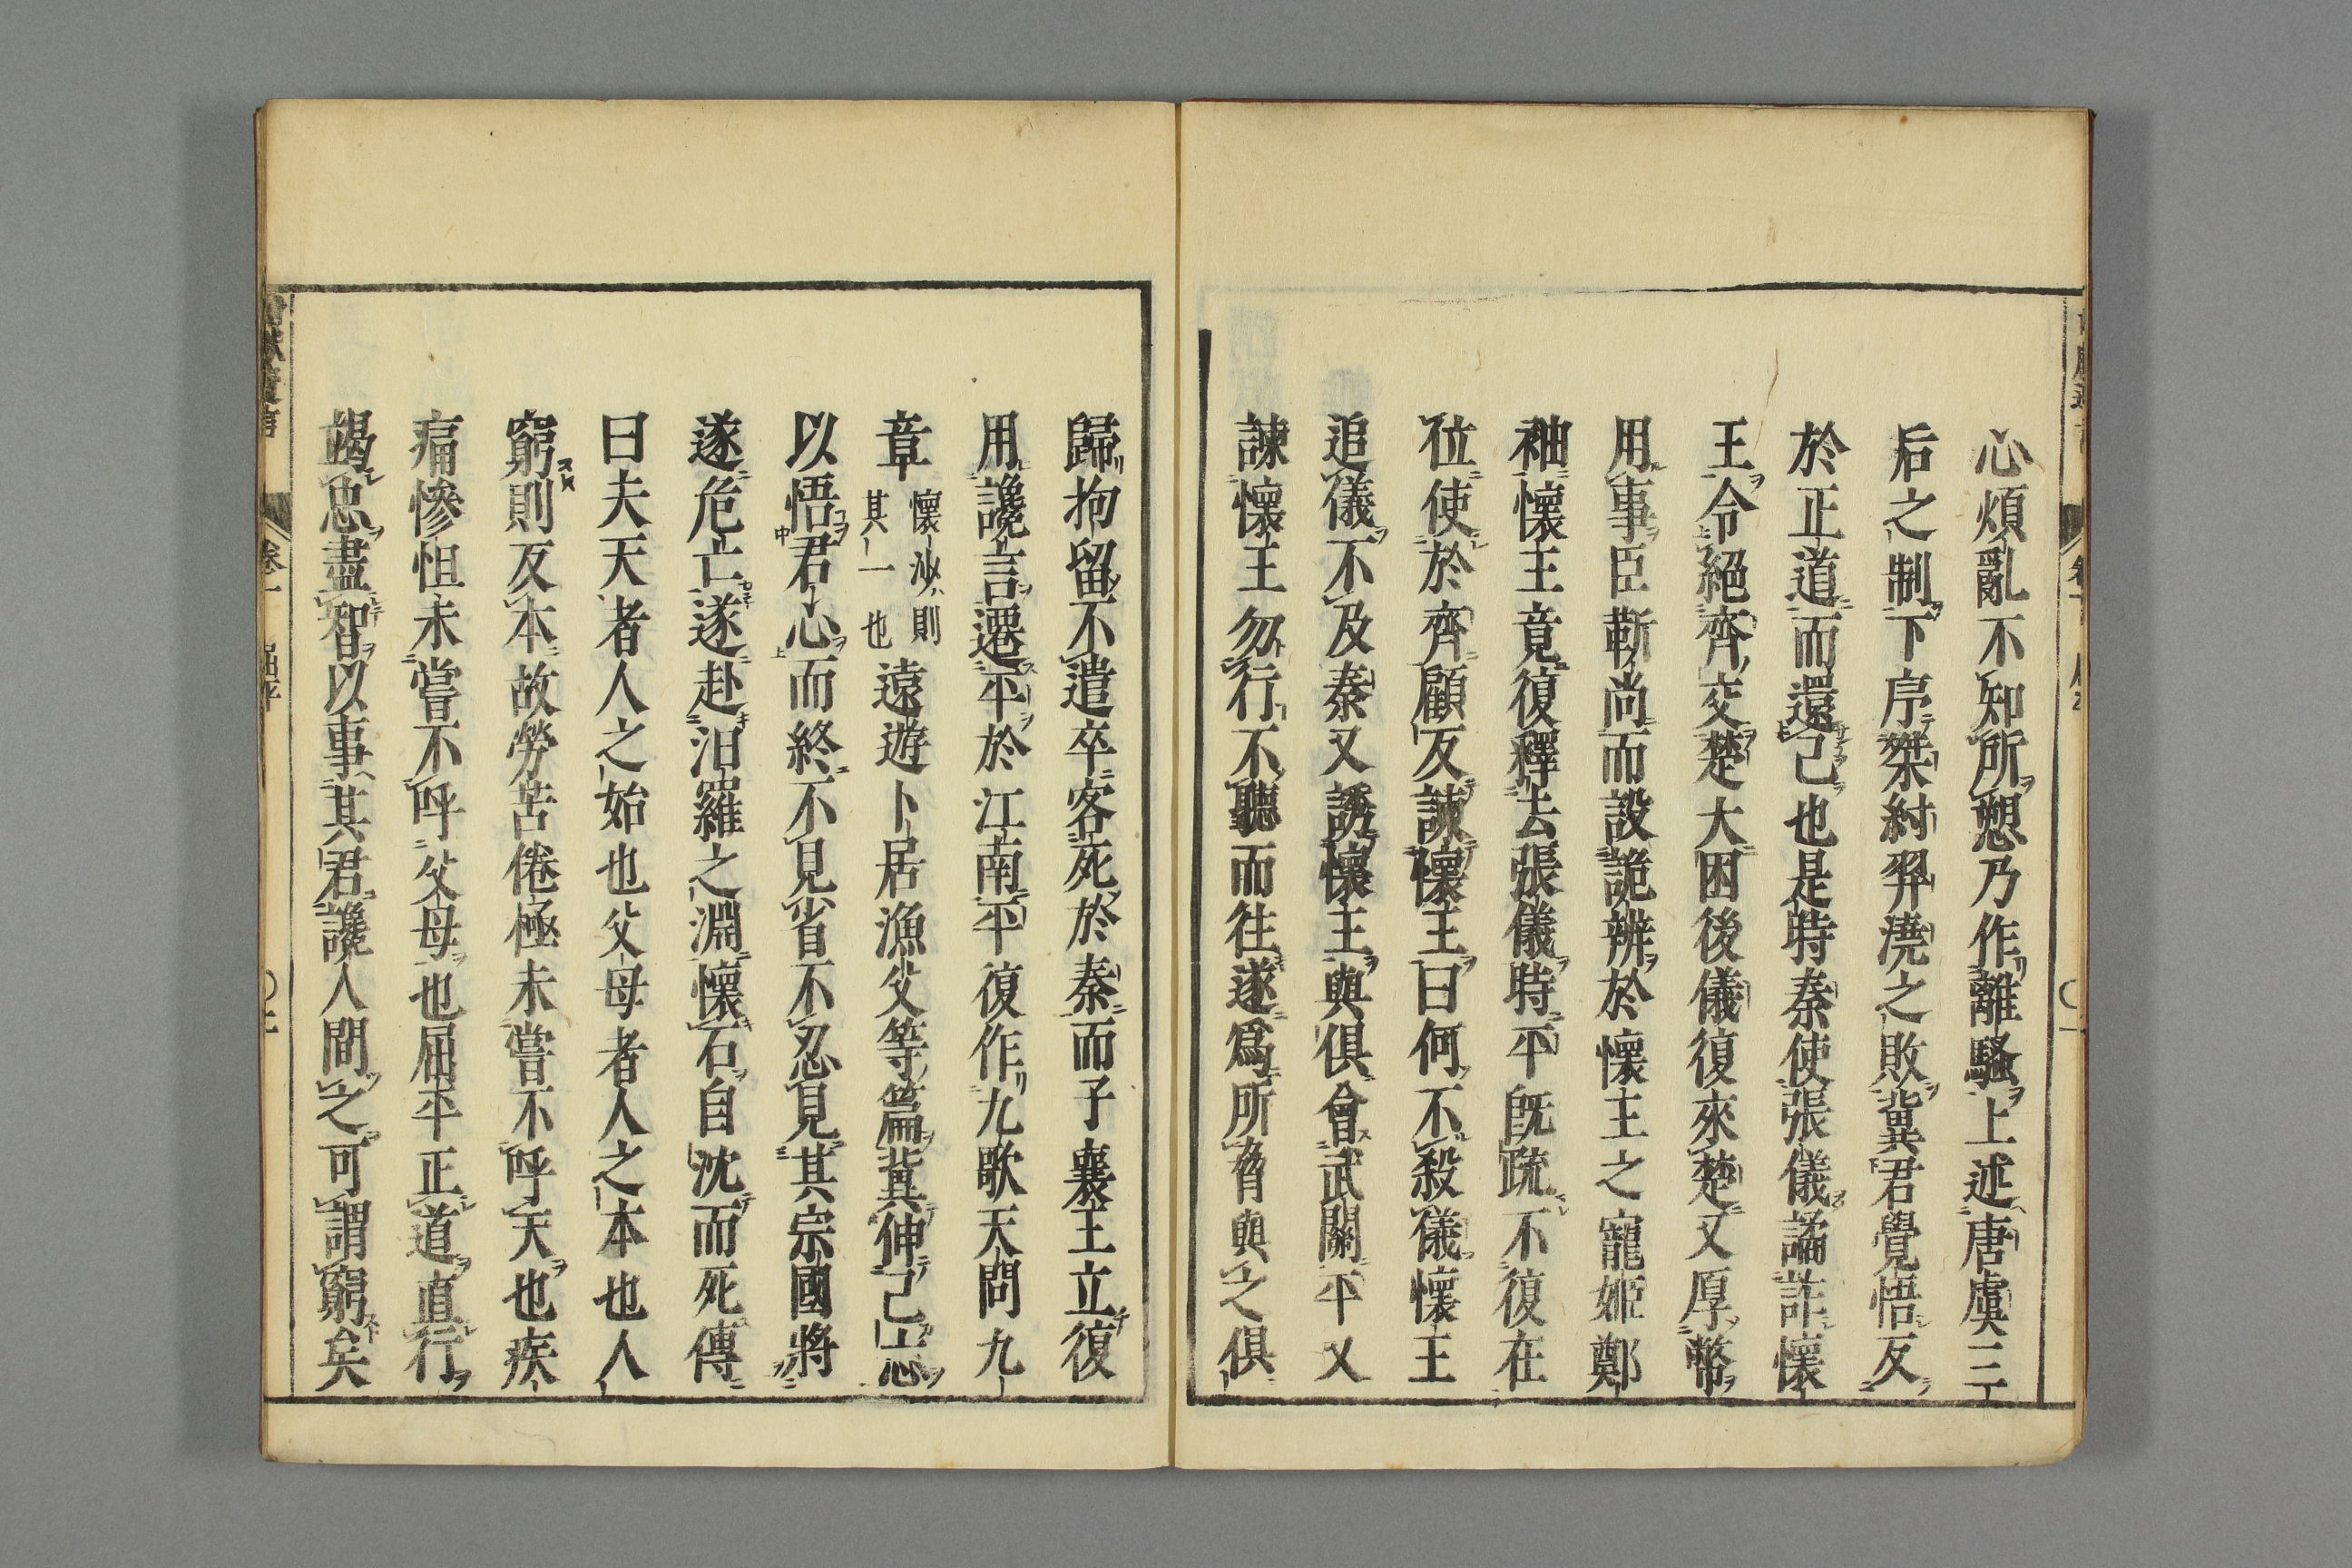 心煩亂不知所愬乃作離騷上述唐虞三
后之制下序桀紂羿澆之敗冀君覺悟反
於正道而還己也是時秦使張儀譎詐懷
王令絕齊交楚大困後儀復來楚又厚幣
用事臣靳尚而設詭辨於懷王之寵姬鄭
袖懷王竟復釋去張儀時平既疏不復在
位使於齊顧反諫懷王曰何不殺儀懷王
追儀不及秦又誘懷王與俱會武關平又
諫懷王勿行不聽而往遂爲所脅與之俱
歸拘留不遣卒客死於秦而子襄王立復
用讒言遷平於江南平復作九歌天問九
章懷沙則其一也遠遊卜居漁父等篇冀伸己志
以悟君心而終不見省不忍見其宗國將
遂危亡遂赴汨羅之淵懷石自沈而死傳
曰夫天者人之始也父母者人之本也人
窮則反本故勞苦倦極未嘗不呼天也疾
痛慘怛未嘗不呼父母也屈平正道直行
竭忠盡智以事其君讒人間之可謂窮矣
卷一 屈平